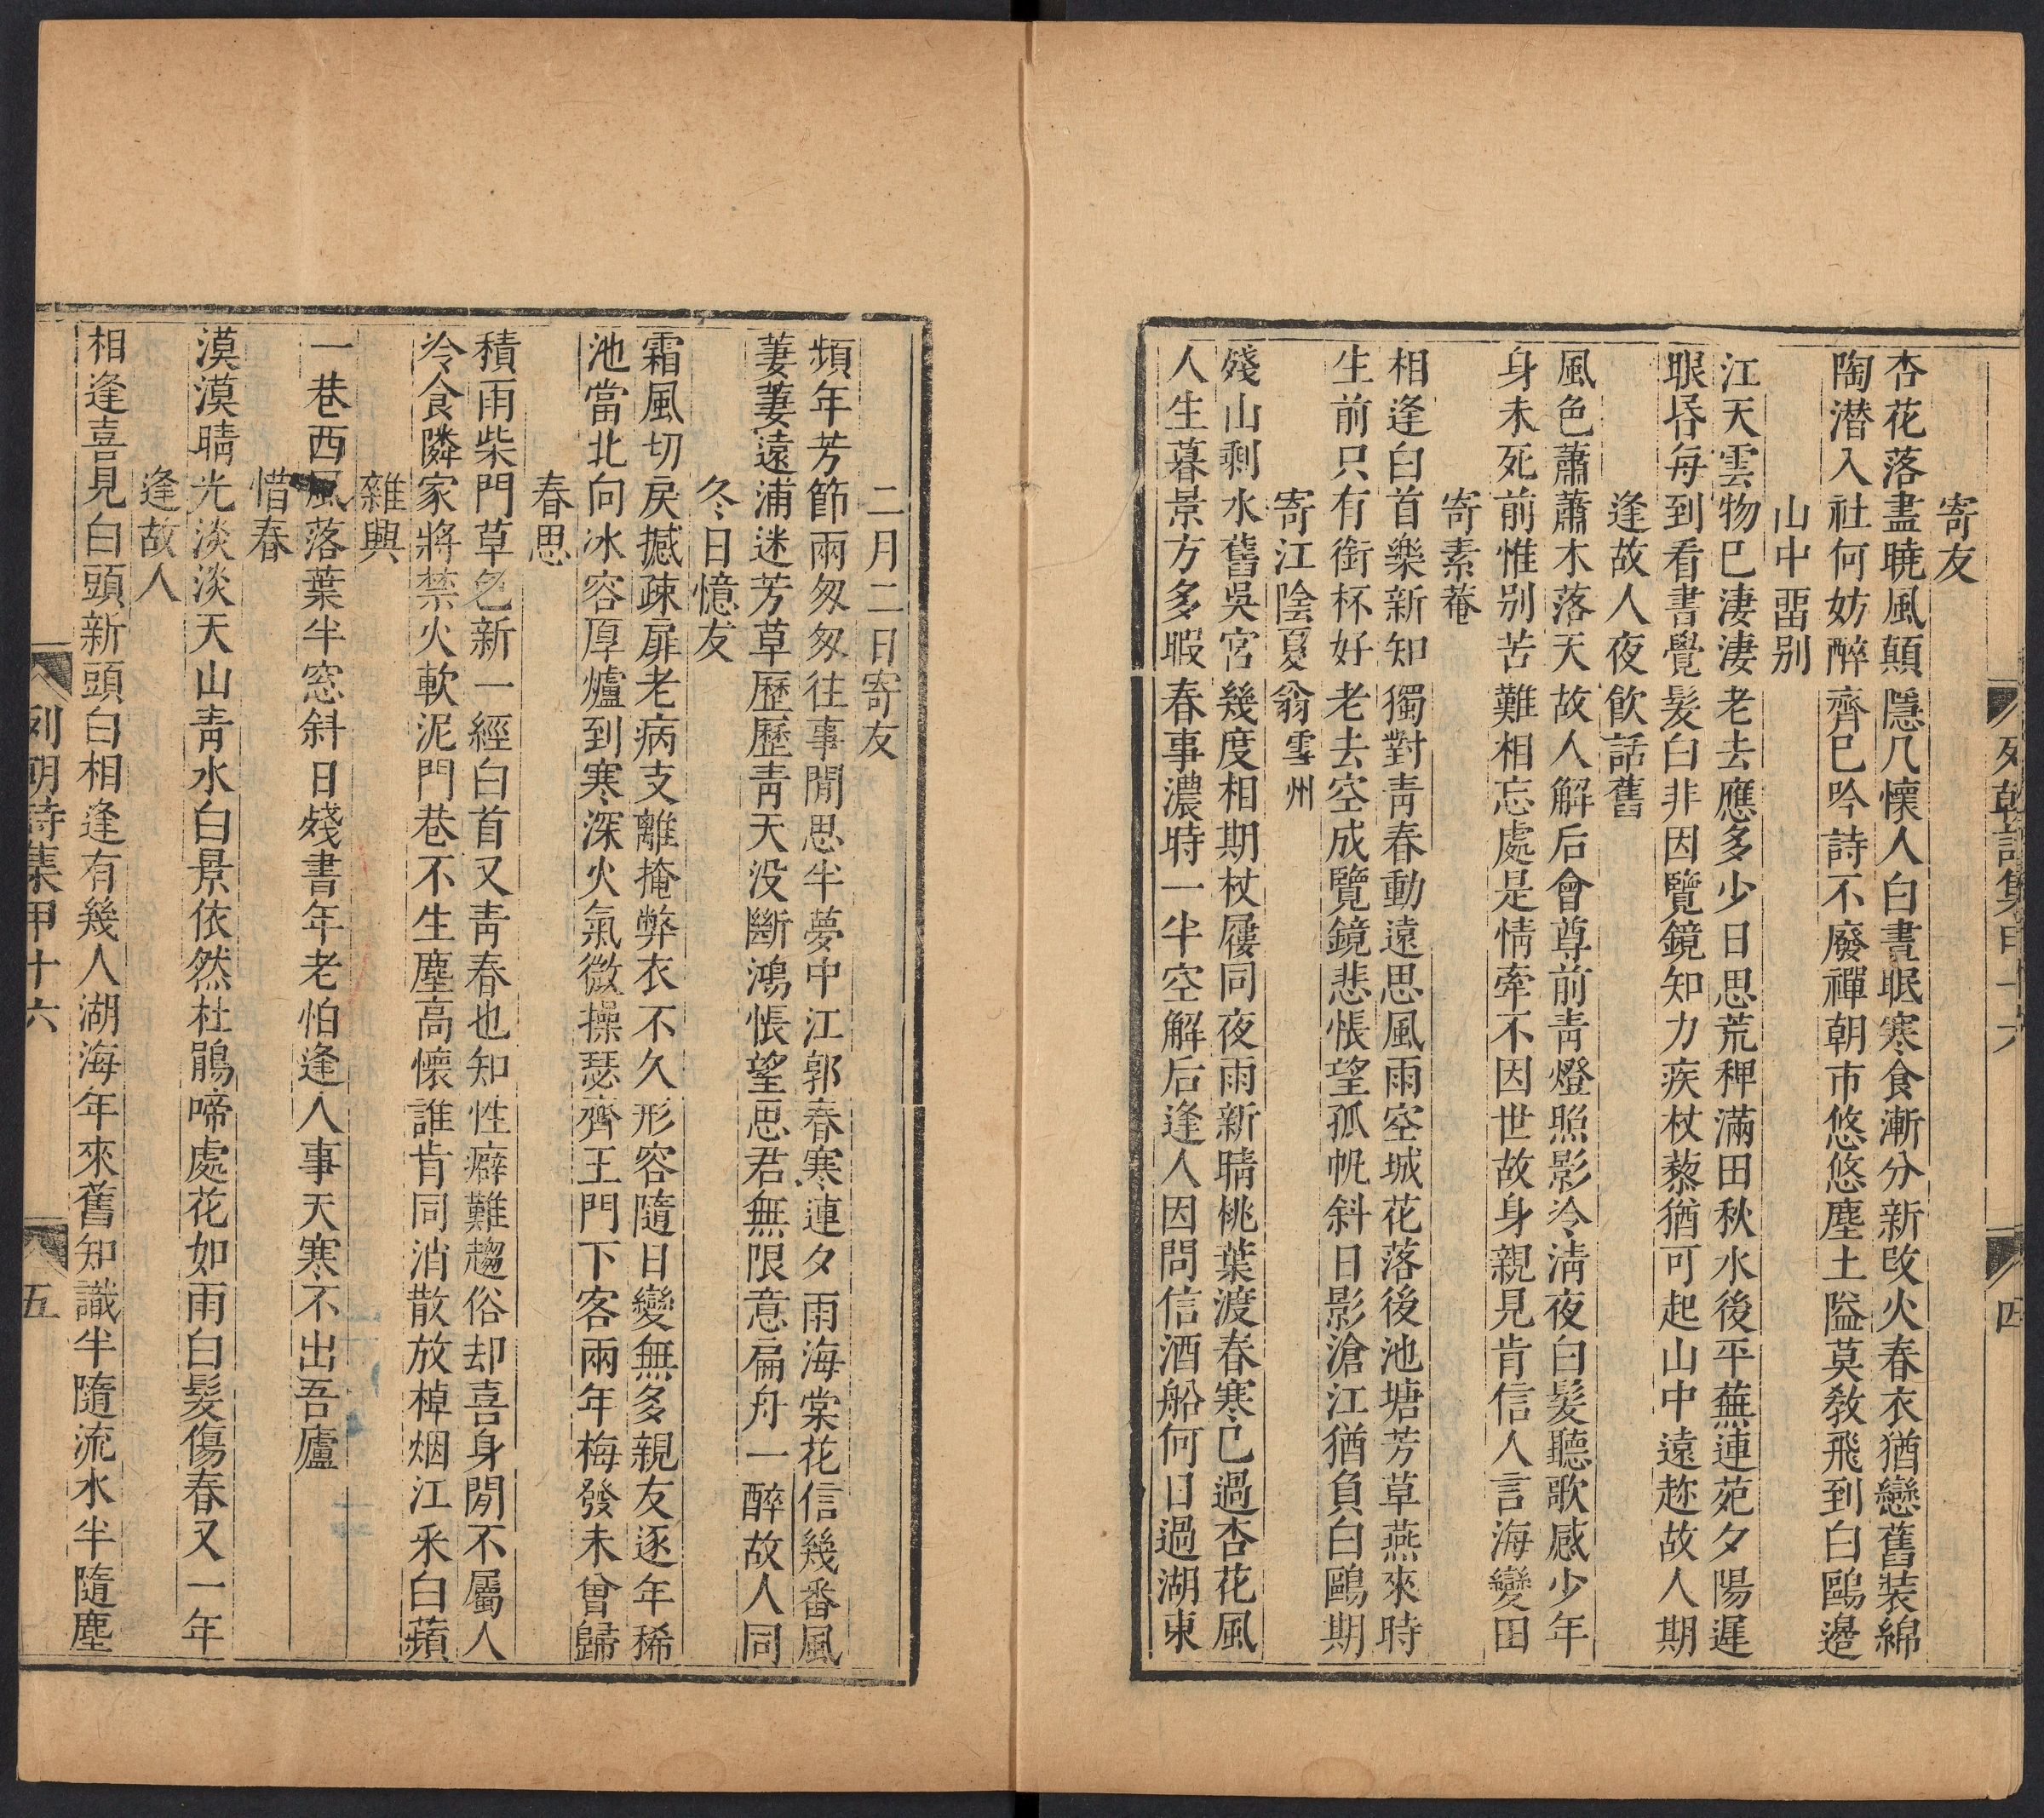 列朝詩集甲十六
四
寄友
杏花落盡曉風顛隱几懷人白晝眠寒食漸分新改火春衣猶戀舊装綿
陶潛入社何妨醉齊已吟詩不廢禪朝市悠悠塵土隘莫教飛到白鷗邊
山中畱别
江天雲物已淒淒老去應多少日思荒稗滿田秋水後平蕪連苑夕陽遲
眼昏每到看書覺髮白非因覽鏡知力疾杖藜猶可起山中遠趂故人期
逢故人夜飲話舊
風色蕭蕭木落天故人解后會尊前靑燈照影冷淸夜白髮聽歌感少年
身未死前惟别苦難相忘處是情牽不因世故身親見肯信人言海變田
寄素菴
相逢白首樂新知獨對靑春動遠思風雨空城花落後池塘芳草燕來時
生前只有銜杯好老去空成覽鏡悲悵望孤帆斜日影滄江猶負白鷗期
寄江陰夏翁雪州
殘山剩水舊吳宮幾度相期杖屨同夜雨新晴桃葉渡春寒已過杏花風
人生暮景方多暇春事濃時一半空解后逢人因問信酒船何日過湖東
二月二日寄友
頻年芳節兩匆匆往事閒思半夢中江郭春寒連夕雨海棠花信幾番風
萋萋遠浦迷芳草歷歷靑天没斷鴻悵望思君無限意扁舟一醉故人同
冬日憶友
霜風切戾撼疎扉老病支離掩弊衣不久形容隨日變無多親友逐年稀
池當北向冰容厚爐到寒深火氣微操瑟齊王門下客兩年梅發未曾歸
春思
積雨柴門草色新一經白首又靑春也知性癖難趨俗却喜身閒不屬人
冷食隣家將禁火軟泥門巷不生塵高懷誰肯同消散放棹烟江采白蘋
雜興
一巷西風落葉半窓斜日殘書年老怕逢人事天寒不出吾廬
惜春
漠漠晴光淡淡天山靑水白景依然杜鵑啼處花如雨白髮傷春又一年
逢故人
相逢喜見白頭新頭白相逢有幾人湖海年來舊知識半隨流水半隨塵
列朝詩集甲十六
五